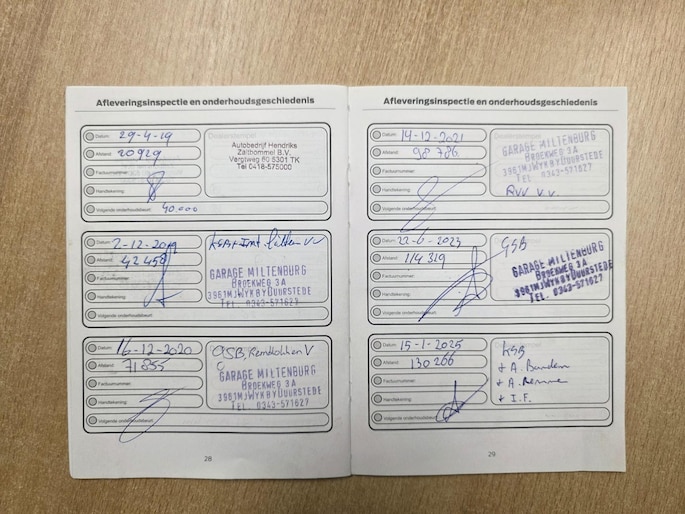 Afleveringsinspectie en onderhoudsgeschiedenis
Datum: 29-4-19
Afstand: 20929
Factuurnummer:
Handtekening:
Volgende onderhoudsbeurt: 40.000
Autobedrijf Hendriks
Zaltbommel B.V.
Vergtweg 60 5301 TK
Tel 0418-575000
Datum: 2-12-2019
Afstand: 42458
Factuurnummer:
Handtekening:
Volgende onderhoudsbeurt:
GARAGE MILTENBURG
BROEKWEG 3A
3961MJ WYK BY DUURSTEDE
TEL. 0343-571627
Datum: 16-12-2020
Afstand: 71855
Factuurnummer:
Handtekening:
Volgende onderhoudsbeurt:
GSB, Remblokken V
GARAGE MILTENBURG
BROEKWEG 3A
3961MJ WYK BY DUURSTEDE
TEL. 0343-571627
28
Afleveringsinspectie en onderhoudsgeschiedenis
Datum: 14-12-2021
Afstand: 98786
Factuurnummer:
Handtekening:
Volgende onderhoudsbeurt:
GARAGE MILTENBURG
BROEKWEG 3A
3961MJ WYK BY DUURSTEDE
TEL. 0343-571627
RVV V.V.
Datum: 22-6-2023
Afstand: 114319
Factuurnummer:
Handtekening:
Volgende onderhoudsbeurt:
GSB
GARAGE MILTENBURG
BROEKWEG 3A
3961MJ WYK BY DUURSTEDE
TEL. 0343-571627
Datum: 15-1-2025
Afstand: 130266
Factuurnummer:
Handtekening:
Volgende onderhoudsbeurt:
KSB
+ A. Banden
+ A. Remme
+ I.F.
29